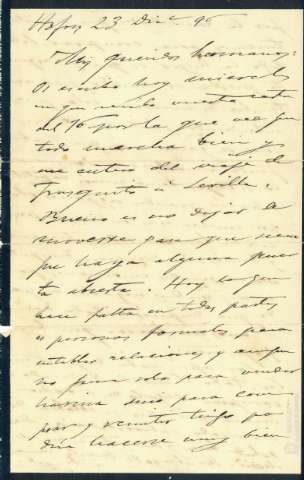 Haro, 23 Dic.e 96
Muy queridos hermanos:
Os escribo hoy miercoles
en que recibo vuestra carta
del 16 por la que veo que
todo marcha bien y
me entero del viaje de
Frasquito á Sevilla.
Bueno es no dejar de
moverse para que siem
pre haya alguna puer
ta abierta. Hoy la gen
hace falta en todas partes
es personas formales para
entablar relaciones y aunque
no fuera solo para vender
harina sino para com
prar y remitir trigo po
dria hacerse muy bien